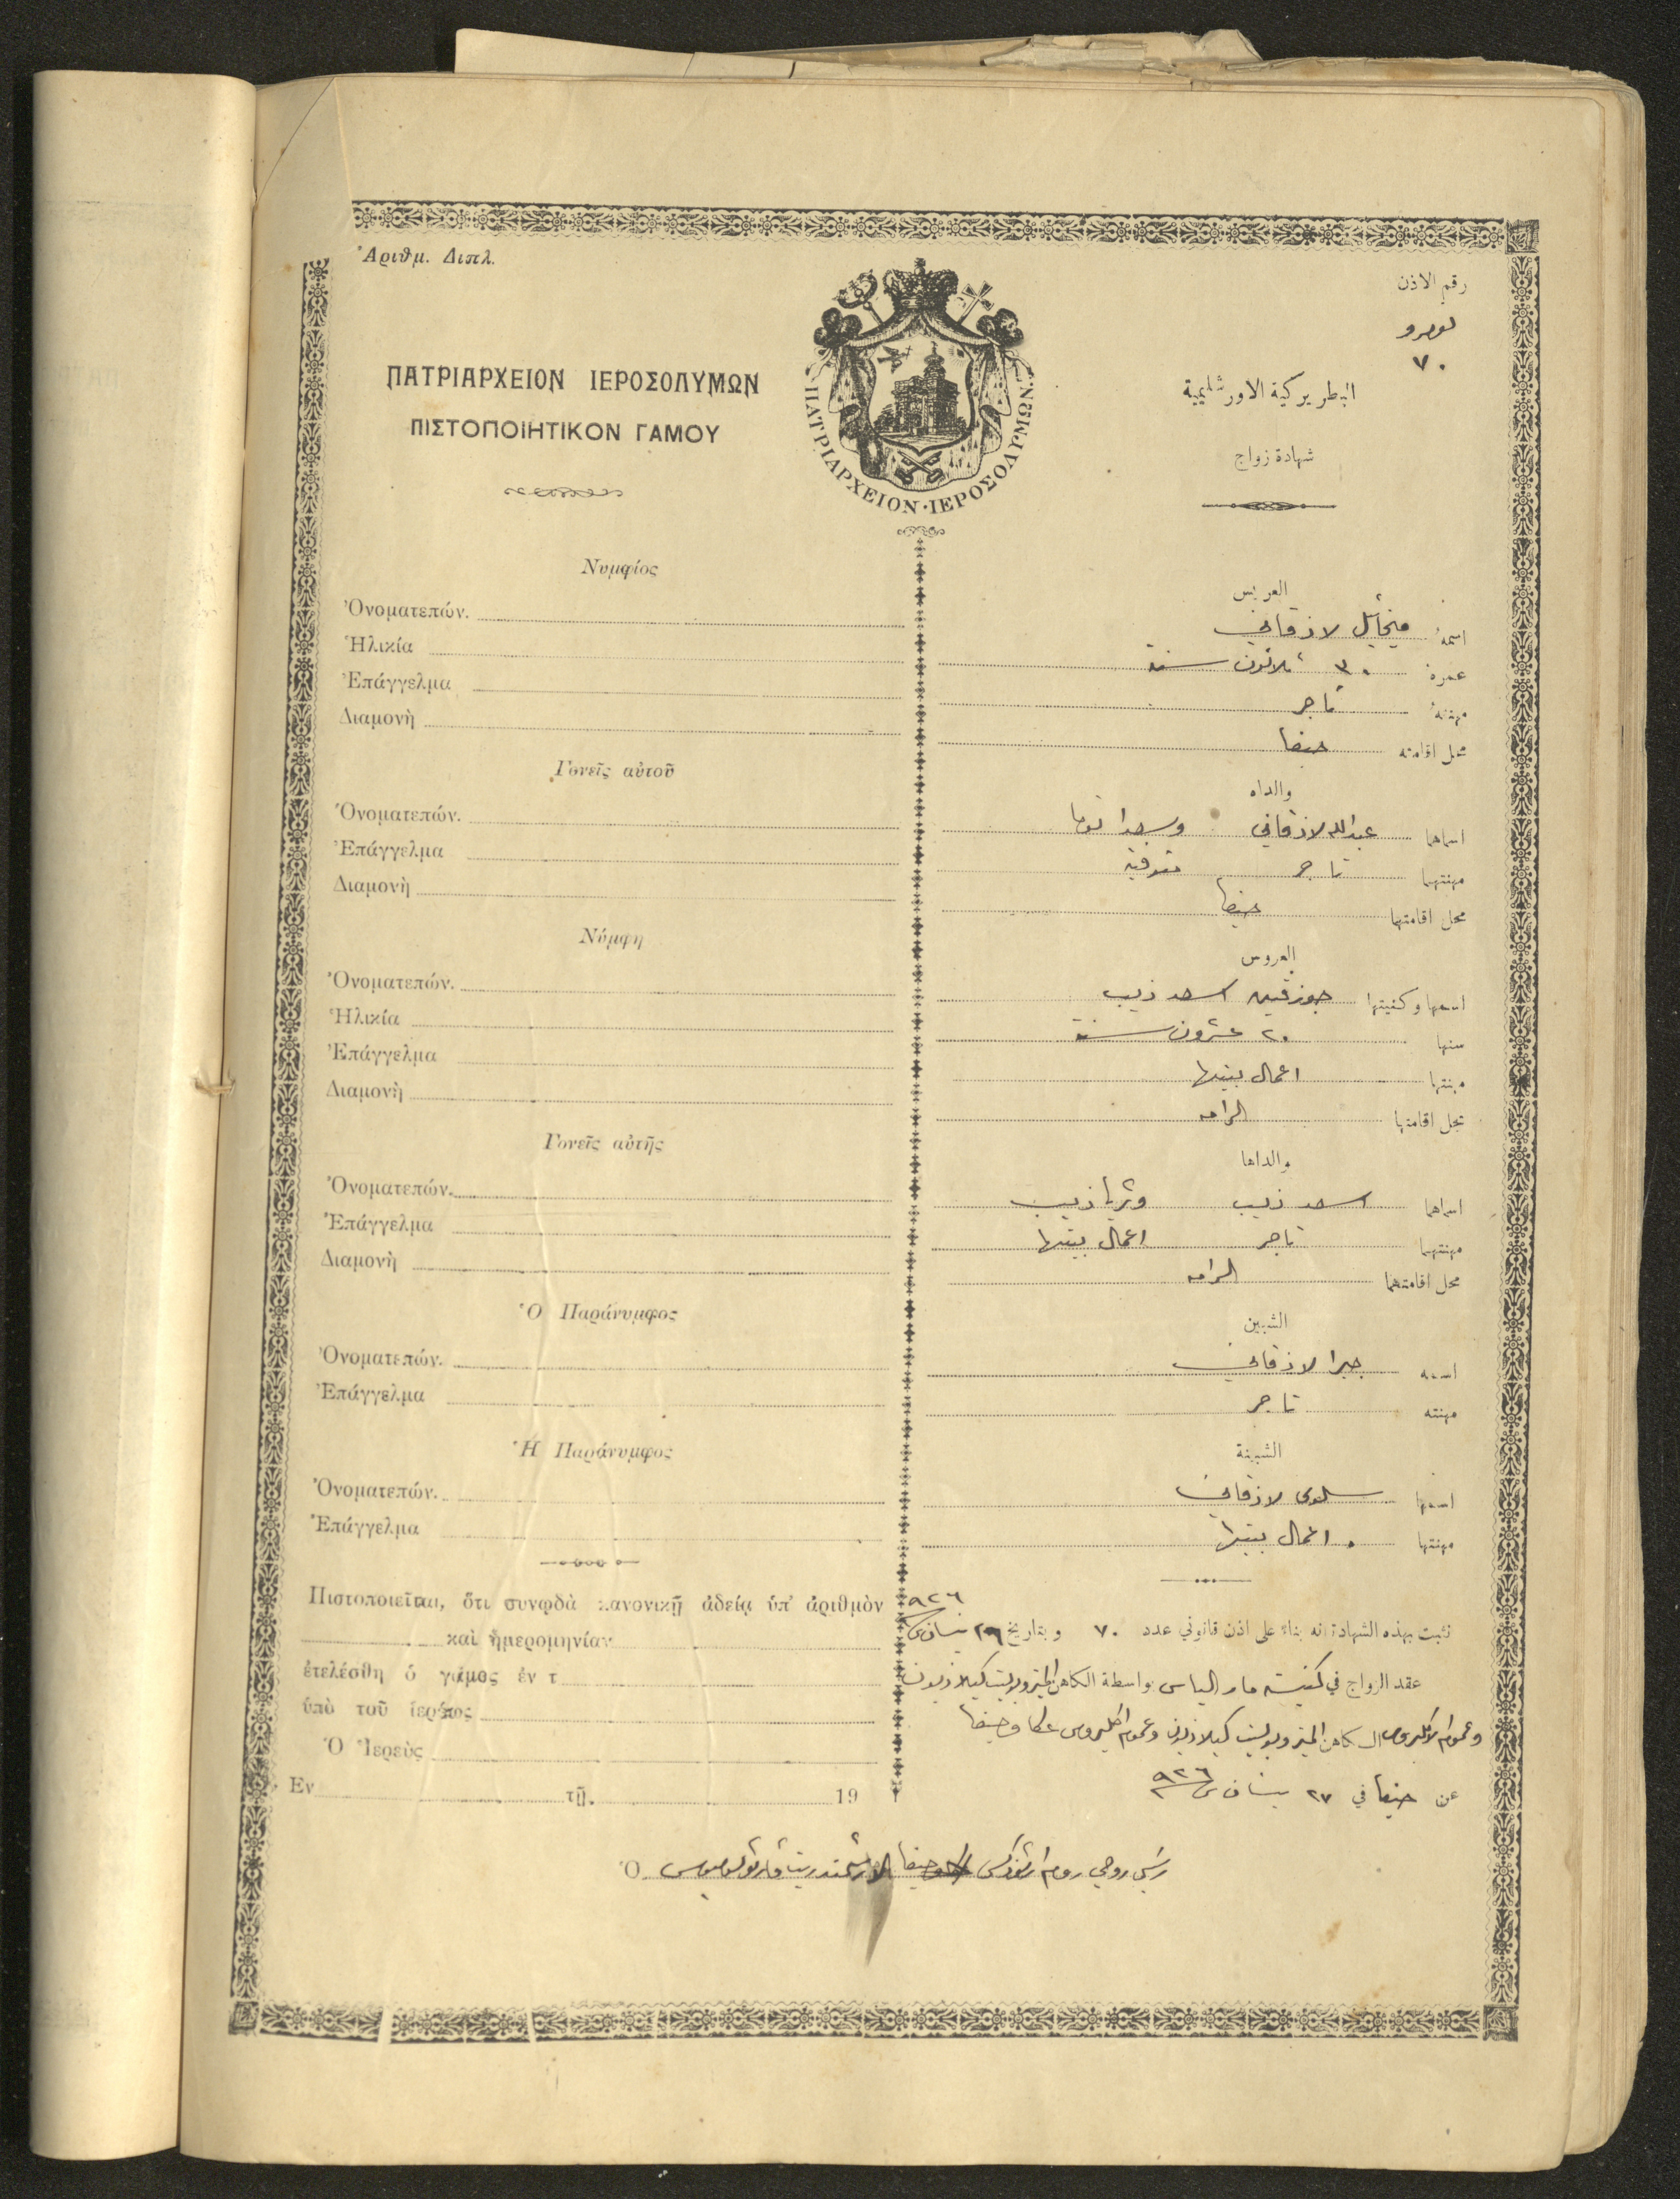 Ἀριθμ. Διπλ.
رقم الاذن
نومرو
٧٠
ΠΑΤΡΙΑΡΧΕΙΟΝ ΙΕΡΟΣΟΛΥΜΩΝ
ΠΙΣΤΟΠΟΙΗΤΙΚΟΝ ΓΑΜΟΥ
ΠΑΤΡΙΑΡΧΕΙΟΝ·ΙΕΡΟΣΟΛΥΜΩΝ
البطريركية الاورشليمية
شهادة زواج
Νυμφίος
Ὀνοματεπών.
Ἡλικία
Ἐπάγγελμα
Διαμονὴ
Γονεῖς αὐτοῦ
Ὀνοματεπών.
Ἐπάγγελμα
Διαμονὴ
Νύμφη
Ὀνοματεπών.
Ἡλικία
Ἐπάγγελμα
Διαμονὴ
Γονεῖς αὐτῆς
Ὀνοματεπών.
Ἐπάγγελμα
Διαμονὴ
Ὁ Παράνυμφος
Ὀνοματεπών.
Ἐπάγγελμα
Ἡ Παράνυμφος
Ὀνοματεπών.
Ἐπάγγελμα
Πιστοποιεῖται, ὅτι συνῳδὰ κανονικῇ ἀδείᾳ ὑπ' ἀριθμὸν
καὶ ἡμερομηνίαν
ἐτελέσθη ὁ γάμος ἐν τ
ὑπὸ τοῦ ἱερέως
Ὁ Ἱερεὺς
Ἐν τῇ 19
العريس
اسمهُ ميخائيل لاذقاني
عمرهُ ٣٠ ثلاثون سنة
مهنتهُ تاجر
محل اقامته حيفا
والداه
اسماهما عبدالله لاذقاني توما
مهنتهما تاجر متوفية
محل اقامتهما حيفا
العروس
اسمها وكنيتها اسعد ذيب
سنها ٢٠ عشرون سنة
مهنتها اعمال بيتها
محل اقامتها الرامه
والداها
اسماهما اسعد ذيب وثريا ذيب
مهنتهما تاجر اعمال بيتها
محل اقامتهما الرامه
الشبين
اسمه جبرا لاذقاني
مهنته تاجر
الشبينة
اسمها سلوى لاذقاني
مهنتها اعمال بيتها
نثبت بهذه الشهادة انه بناء على اذن قانوني عدد ٧٠ وبتاريخ ٢٦ نيسان ٩٢٦
عقد الزواج في كنيسة مار الياس بواسطة الكاهن المتروبوليت كيلاذيون
وعموم الاكليروس الكاهن المتروبوليت كيلاذيون وعموم اكليروس عكا وحيفا
عن حيفا في ٢٧ نيسان ٩٢٦
Ὁ رئيس روحي روم ارثوذكس حيفا الارشمندريت